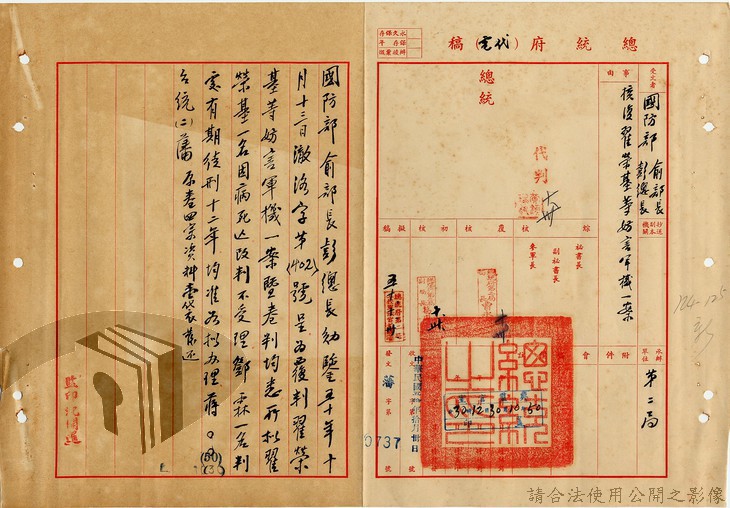 總統府(代電)稿
受文者
國防部 俞部長
彭總長
事由
核復翟榮基等妨害軍機一案
總統
代判
承辦單位
第二局
附件
擬稿
初核
覆核
綜核
秘書長
副秘書長
參軍長
發文
字第
號
0737
50-10-30-12-30
國防部俞部長彭總長勛鑒五十年十
月十三日澈洛字第(402)號呈為覆判翟榮
基等妨害軍機一案暨卷判均悉所擬翟
榮基一名因病死亡改判不受理鄧霖一名判
處有期徒刑十二年均准照擬辦理蔣○○(50)(3)
台統(二)藩 原卷四宗資料壹袋發還
124-125
請合法使用公開之影像